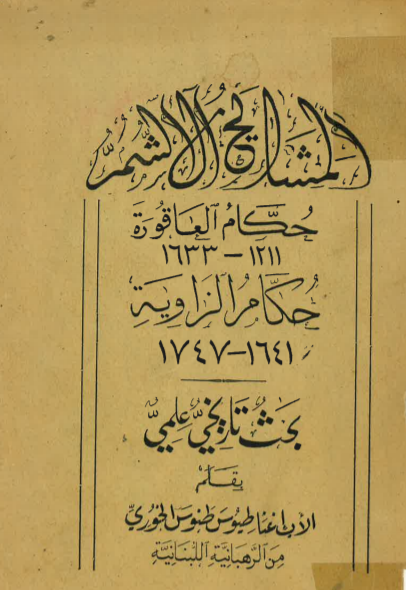 المشايخ آل الشمر
حُكّامُ العَاقُورَة
١٢١١ – ١٦٣٣
حُكّامُ الزّاوِيَةِ
١٦٤١–١٧٤٧
بَحثٌ تَارِيخيٌّ عِلميٌّ
بقَلَم
الأب اغناطيوس طنوس الخوري
مِنَ الرّهبَانيَّةِ اللّبنَانيَّةِ